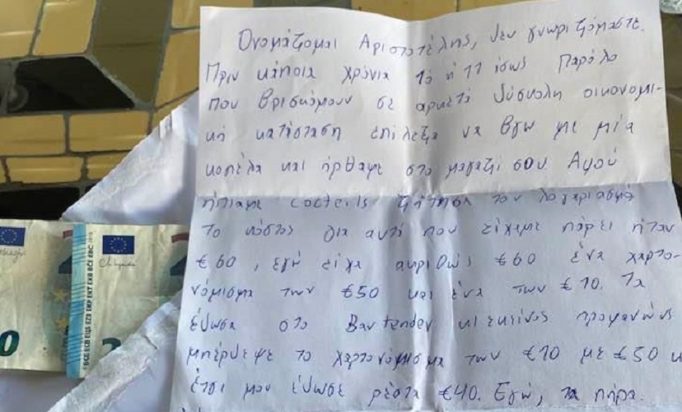 Ονομάζομαι Αριστοτέλης, δεν γνωριζόμαστε.
Πριν κάποια χρόνια 10 ή 11 ίσως παρόλο
που βρισκόμουν σε αρκετά δύσκολη οικονομι-
κή κατάσταση επίλεξα να βγω με μία
κοπέλα και ήρθαμε στο μαγαζί σου. Αφού
ήπιαμε cocteils ζήτησα τον λογαριασμό
Το κόστος για αυτά που είχαμε πάρει ήταν
€60, εγώ είχα ακριβώς €60 ένα χαρτο-
νόμισμα των €50 και ένα των €10. Τα
έδωσα στο Bartender κι εκείνος προφανώς
μπέρδεψε το χαρτονόμισμα των €10 με €50 κ
έτσι μου έδωσε ρέστα €40. Εγώ, τα πήρα.